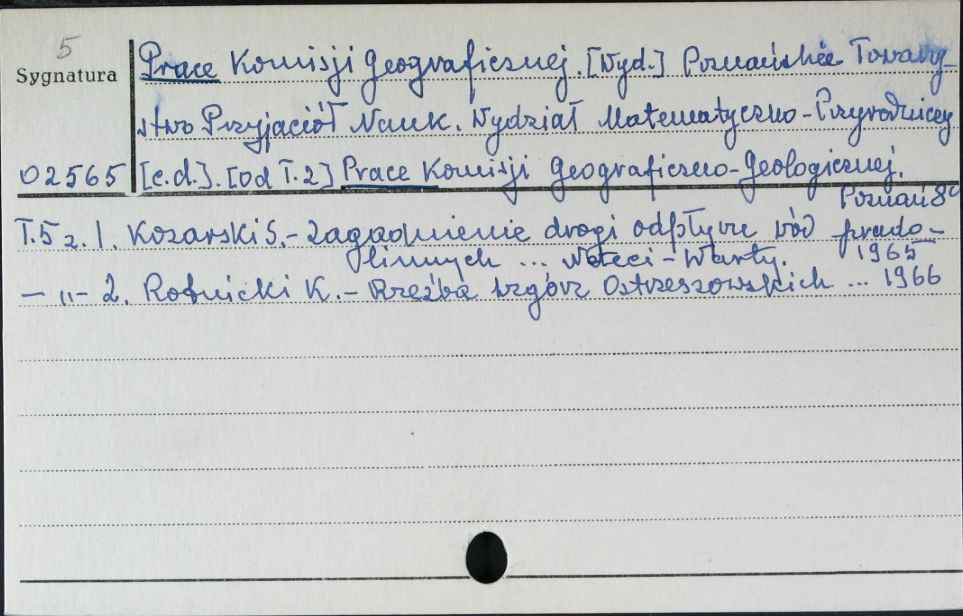 5
Sygnatura
Prace Komisji Geograficznej. [Wyd.] Poznańskie Towarzy-
stwo Przyjaciół Nauk. Wydział Matematyczno-Przyrodniczy
02565 [c.d.]. [od T.2] Prace Komisji Geograficzno-Geologicznej.
Poznań 8°
T.5 z. 1. Kozarski S.- Zagadnienie drogi odpływu wód prado-
linnych ... Noteci-Warty. 1965
— „ — 2. Rotnicki K.- Rzeźba wzgórz Ostrzeszowskich ... 1966